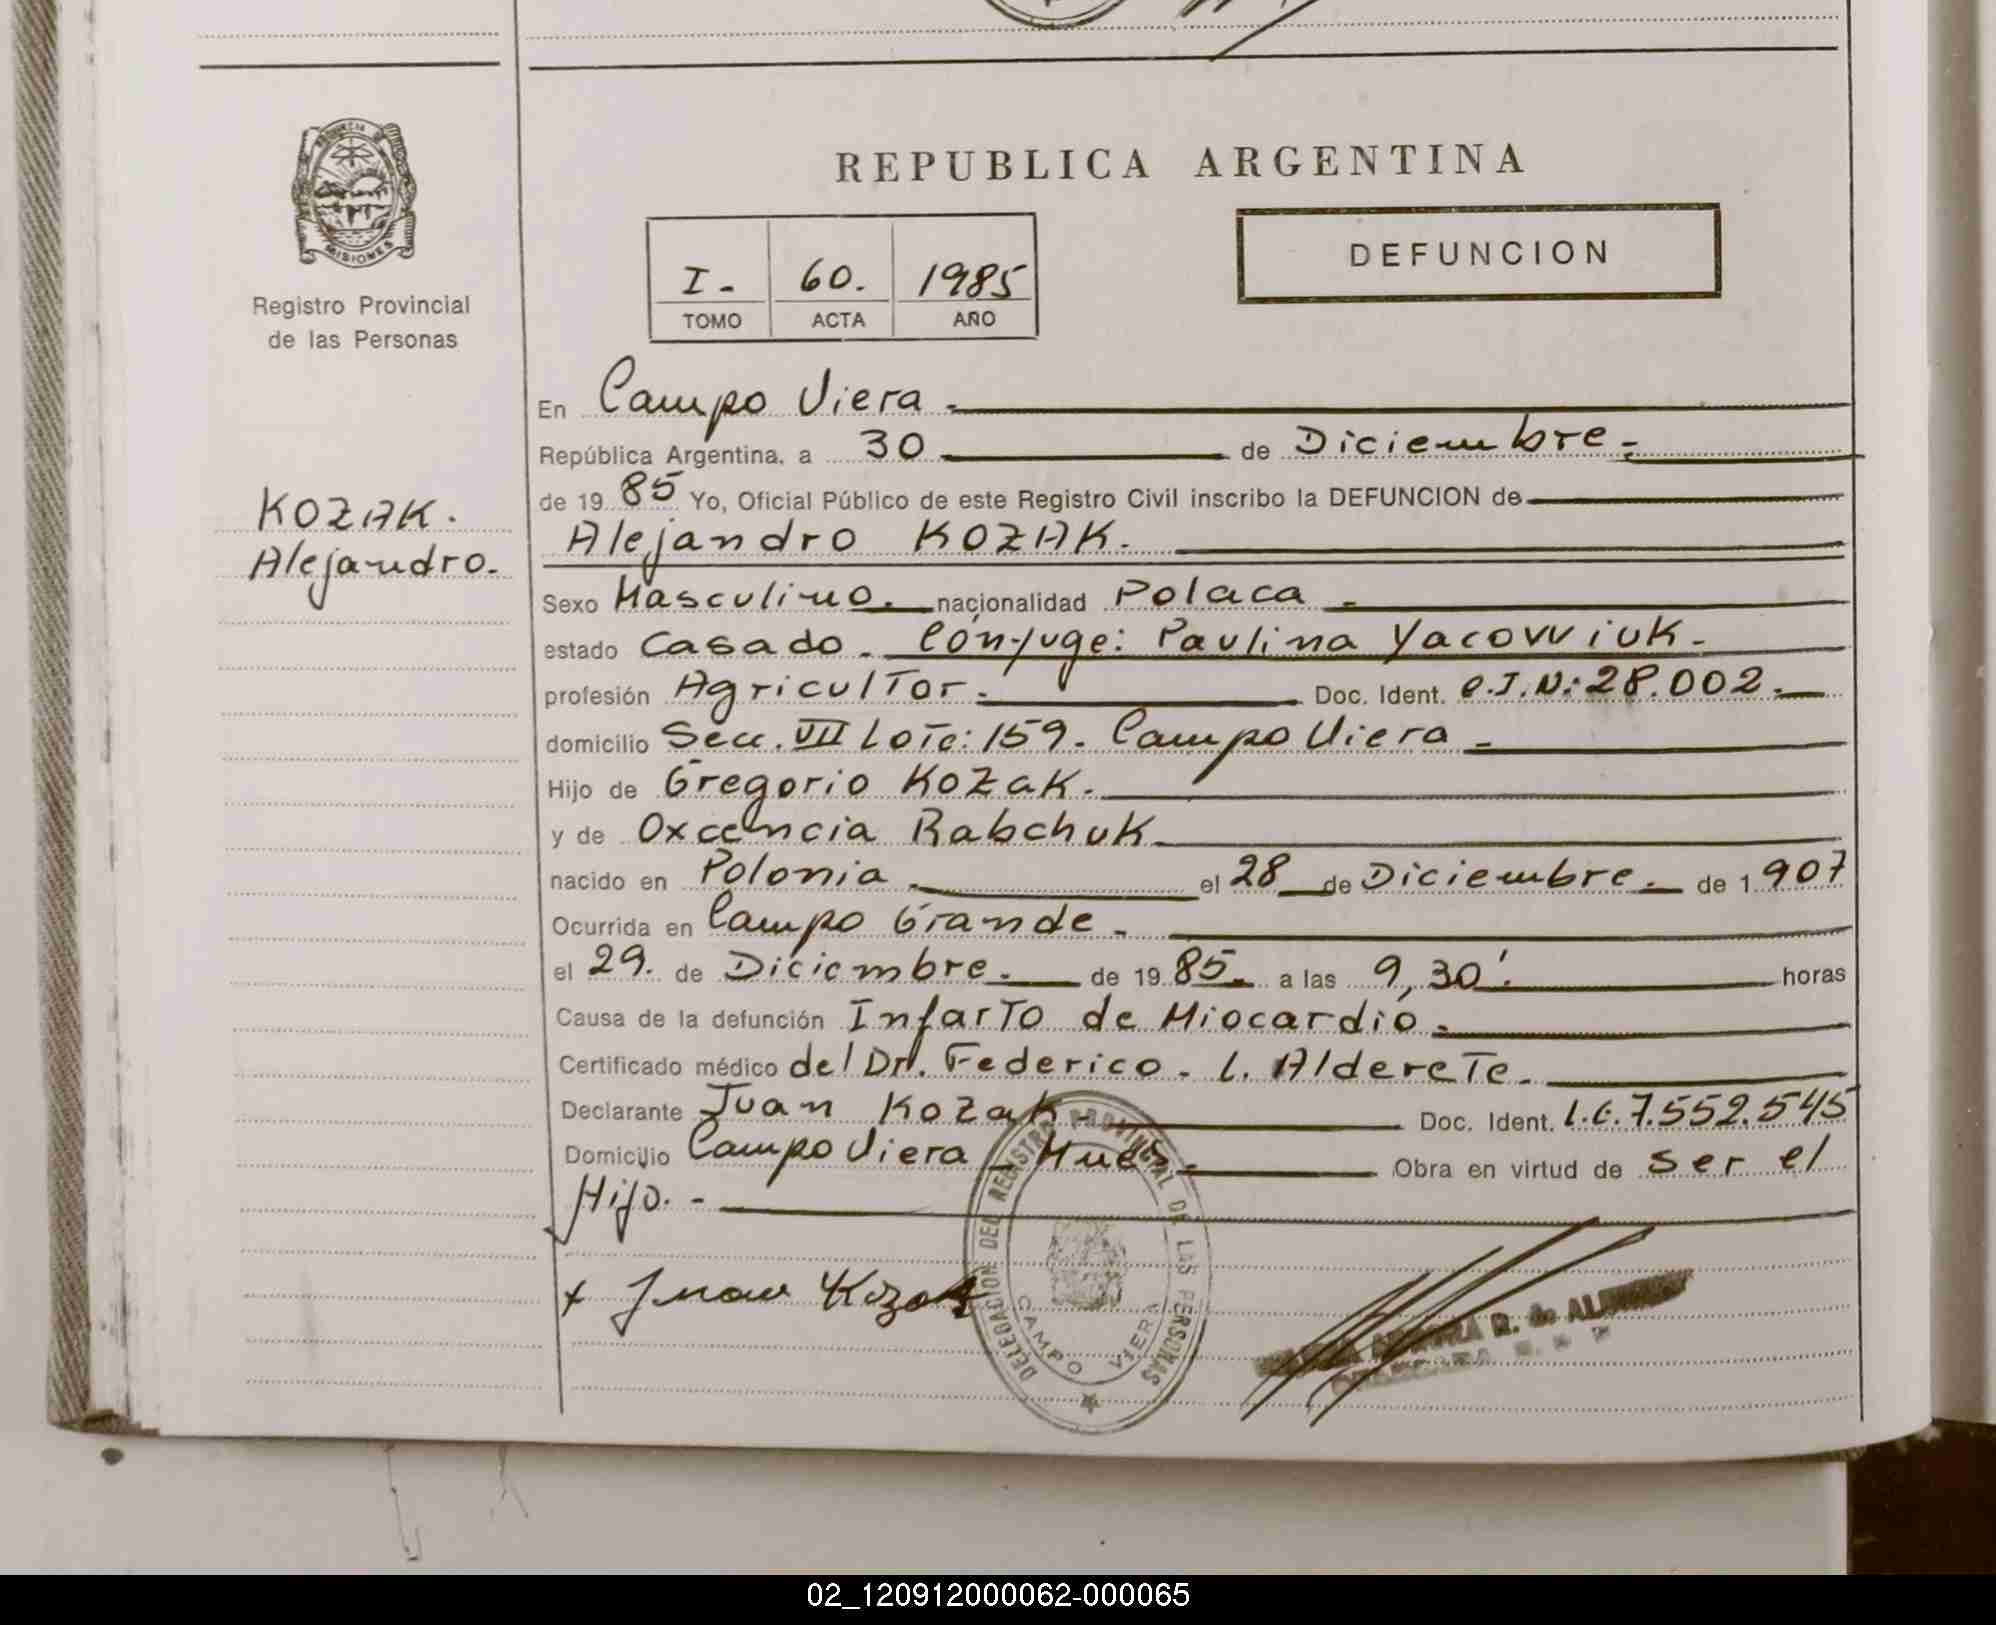 PROVINCIA DE
MISIONES
Registro Provincial
de las Personas
KOZAK.
Alejandro.
REPUBLICA ARGENTINA
I. 60. 1985
TOMO ACTA AÑO
DEFUNCION
En Campo Viera.
República Argentina, a 30 de Diciembre.
de 1985 Yo, Oficial Público de este Registro Civil inscribo la DEFUNCION de
Alejandro KOZAK.
Sexo Masculino. nacionalidad Polaca
estado Casado. Cónyuge: Paulina Yacowiuk.
profesión Agricultor. Doc. Ident. C.I.N: 28.002.
domicilio Secc. VII Lote: 159. Campo Viera
Hijo de Gregorio Kozak.
y de Oxcencia Rabchuk
nacido en Polonia. el 28 de Diciembre. de 1.907
Ocurrida en Campo Grande.
el 29. de Diciembre. de 1985. a las 9,30'. horas
Causa de la defunción Infarto de Miocardio.
Certificado médico del Dr. Federico. L. Alderete.
Declarante Juan Kozak. Doc. Ident. L.E. 7.552.545
Domicilio Campo Viera Mnes. Obra en virtud de ser el
Hijo.
x Juan Kozak
DELEGACION DEL REGISTRO PROVINCIAL DE LAS PERSONAS
CAMPO VIERA
R. de
02_120912000062-000065